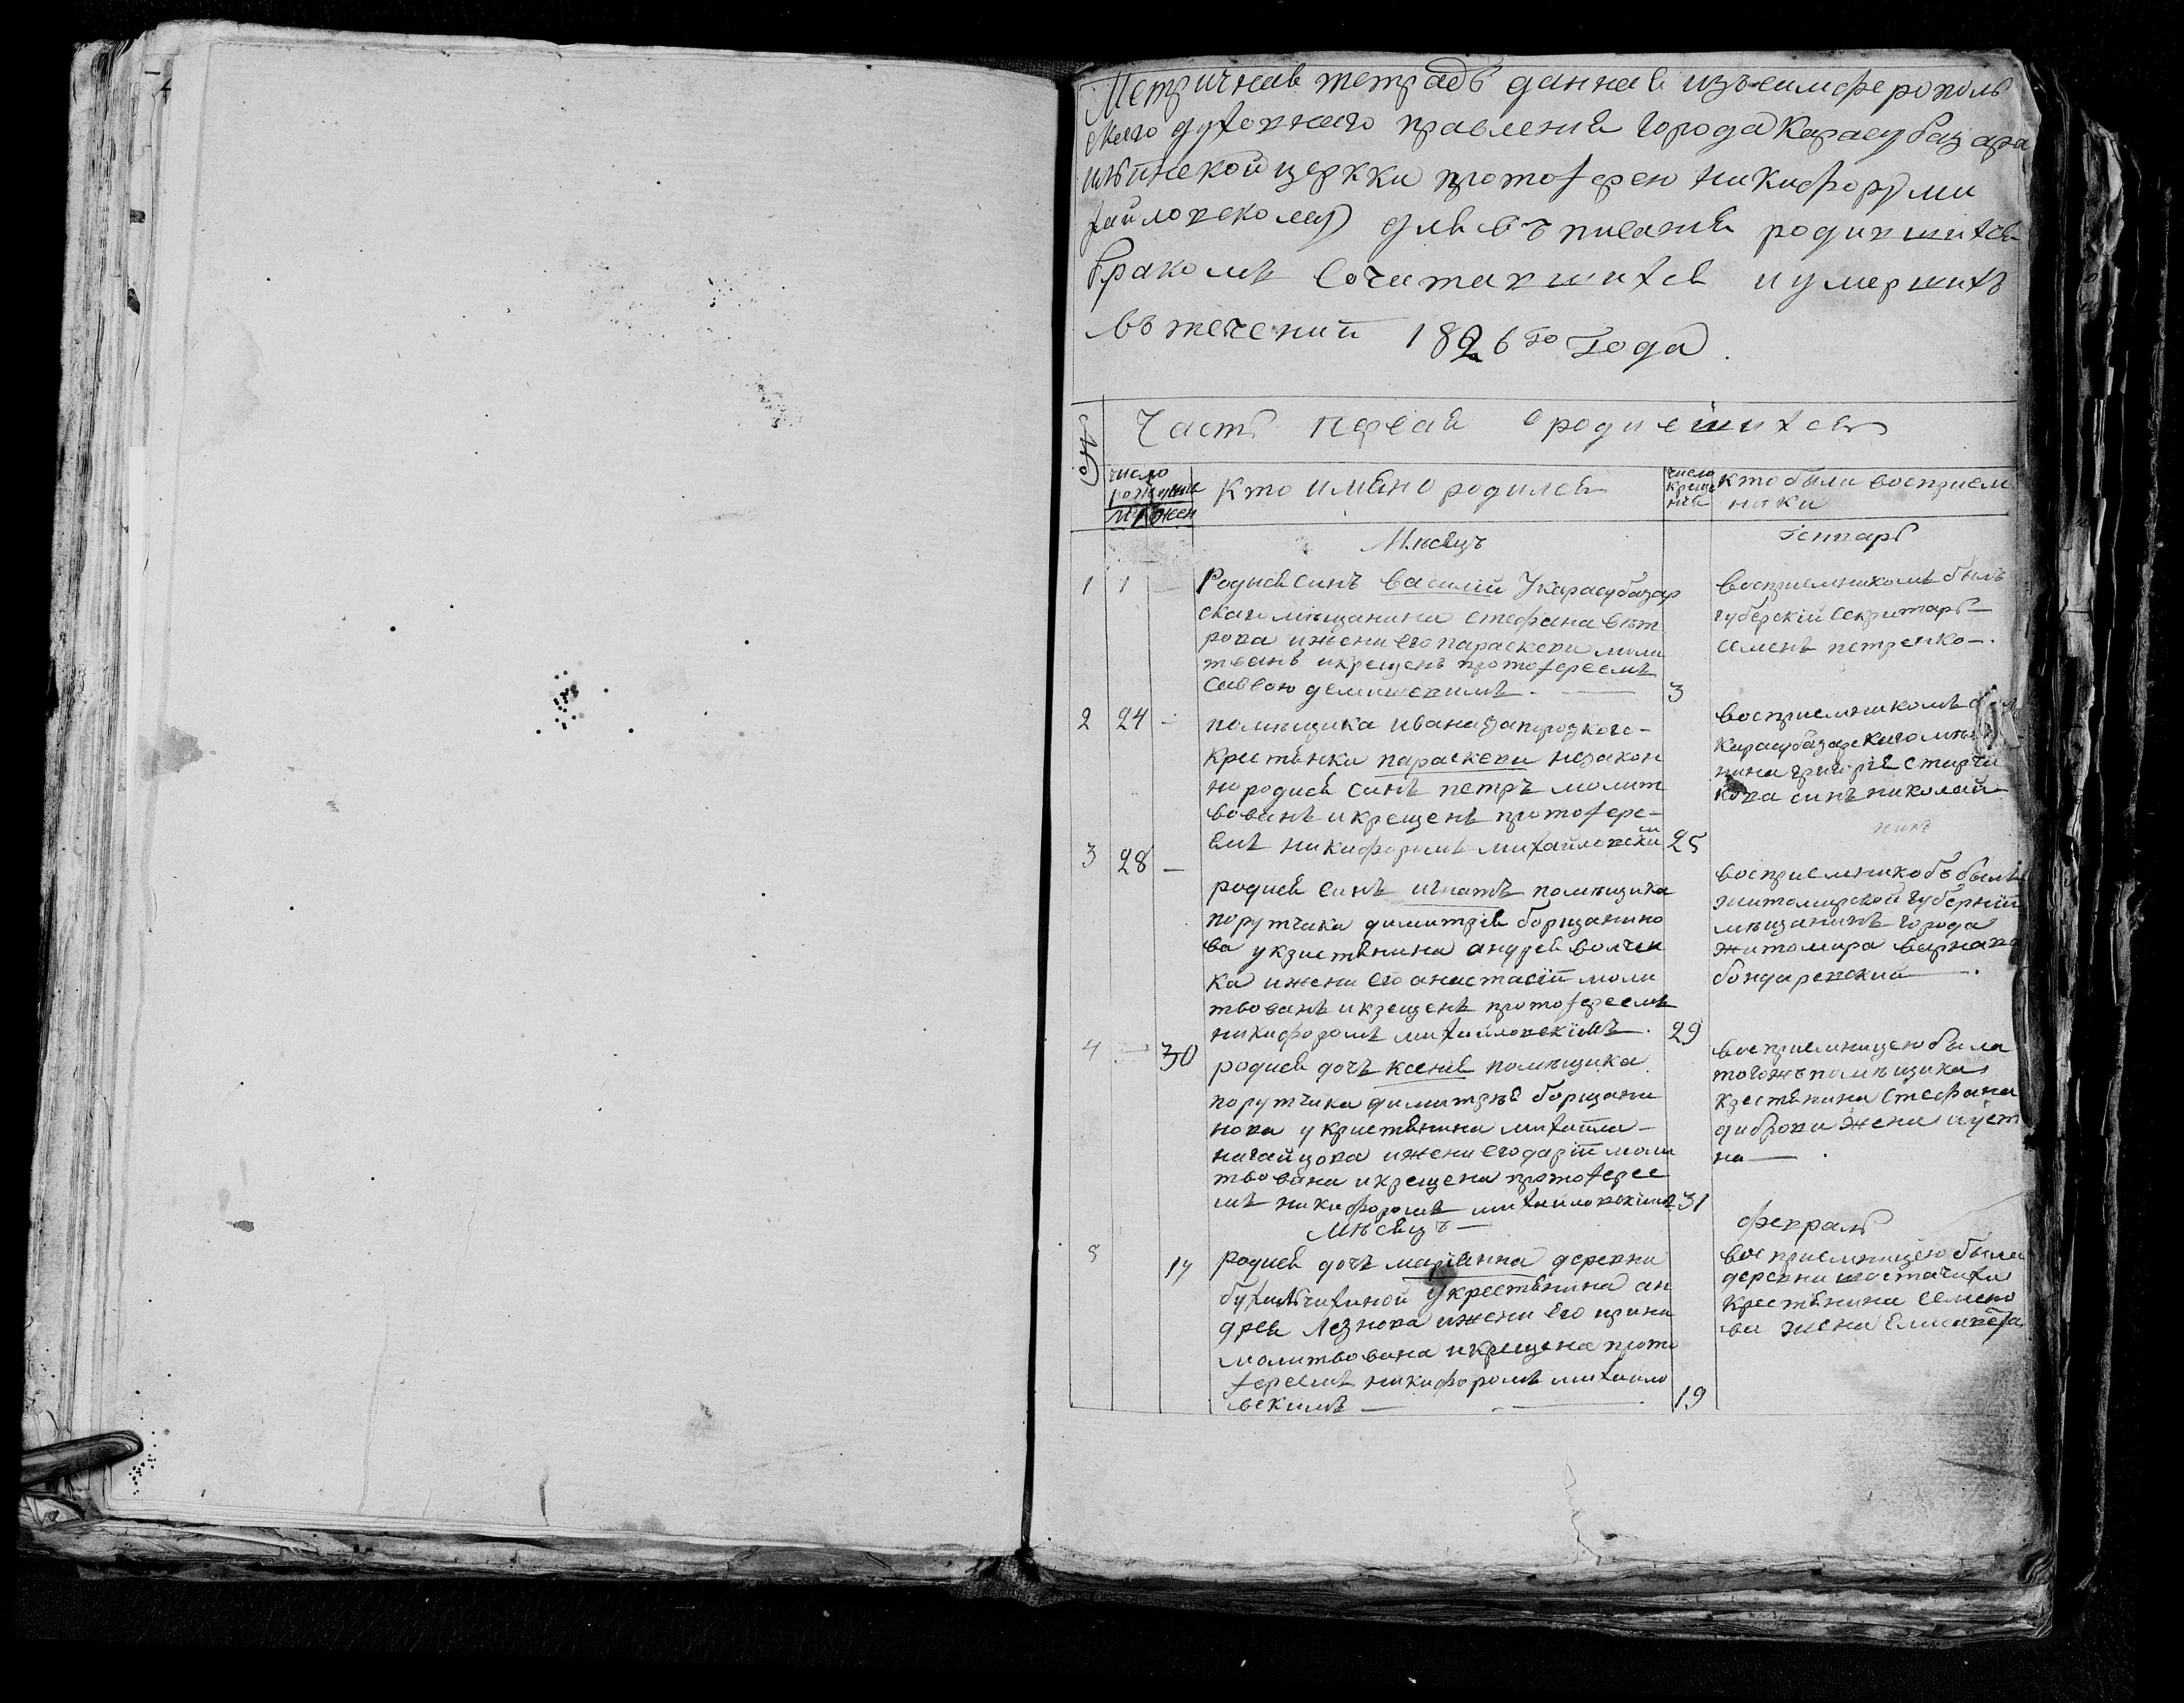 Метричная тетрадь данная изъ симферополь
скаго духовнаго правления города Карасубазара
церкви протоїерею никифору ми
хайловскому для въписанія родившихся
бракомъ сочитавшихся и умершихъ
въ течений 1826го Года.
№ Часть первая о родившихся
число рождения
муж жен
кто имяно родился
число креще ния
кто были восприем
ники
Мѣсяцъ Генпарь
1 1 — Родися синъ василій У карасубазар
скаго мѣщанина стефана вѣт
рова и жени его параскеви моли
твавъ и крещенъ протоїереемъ
Саввою 3
восприемникомъ былъ
губерский секритарь
семенъ петренко —.
2 24 — помѣщика ивана запородкого —
крестянки параскеви незакон
но родися синъ петръ молит
вованъ и крещенъ протоїере —
емъ никифоромъ михайловски м 25
восприемникомъ
карасубазарскаго
нина григорія старчи
кова синъ николай
3 28 — родися синъ игнатъ помѣщика
порутчика димитрія борщанино
ва у кристянина андрея волчен
ка и жени его анастасіи моли
твованъ и крещенъ протоїереемъ
никифоромъ михайловскимъ. 29
восприемникобъ былъ
житомирской губерніи
мѣщанинъ города
житомира варнава
бондаревский —.
4 — 30 родися дочъ ксенія помѣщика
порутчика димитрія борщани
нова у кристянина михаила —
нагайцова и жени его даріи моли
твована и крещена протоїерее
мъ никифоромъ михайловскимъ 31
восприемницею била
тогожъ помѣщика
крестянина стефана
диброви жена иуст
на — .
Мѣсяцъ — февраль
5 14 родися дочъ маріанна деревни
у крестянина ан
дрея Лезнова и жени его ирини
молитвована и крещена прото
їереемъ никифоромъ михайло
вскимъ — 19
восприемницею была
деревни шостачихи
крестянина семено
ва жена елисавефа